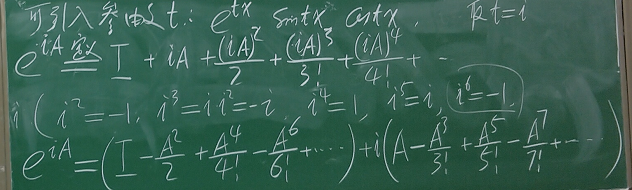 可引入参变量 t: e^{tx} sin tx cos tx. 取 t=i
e^{iA} 定义= I + iA + (iA)^2/2 + (iA)^3/3! + (iA)^4/4! + ...
i ( i^2=-1, i^3=i i^2=-i, i^4=1, i^5=i, i^6=-1,
e^{iA} = (I - A^2/2 + A^4/4! - A^6/6! + ....) + i(A - A^3/3! + A^5/5! - A^7/7! + ...)